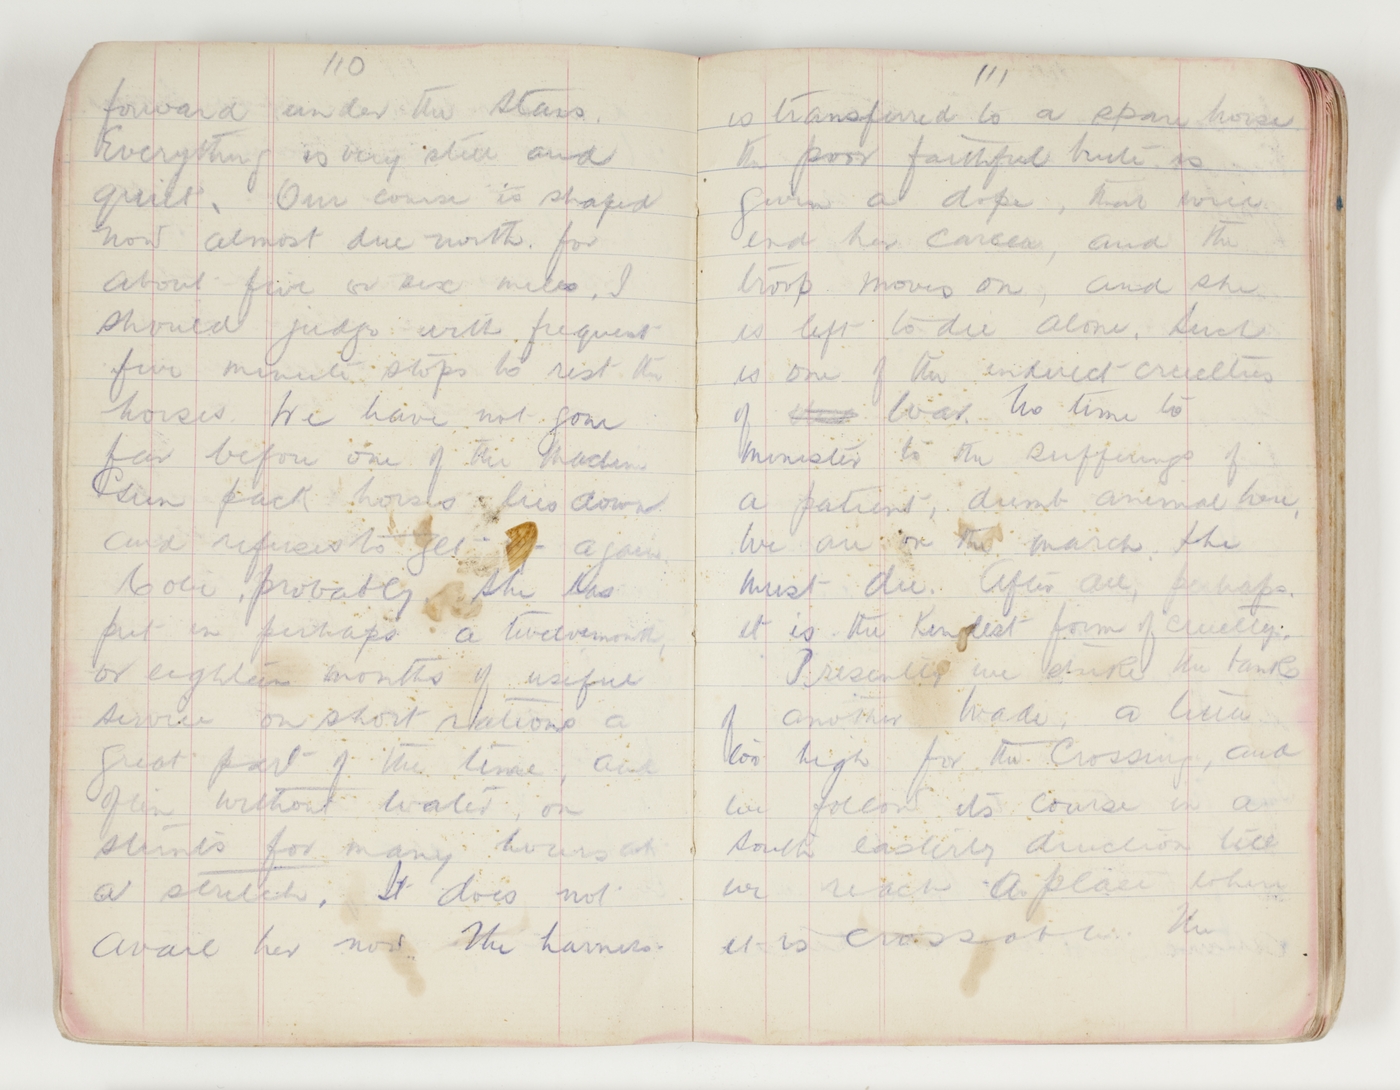 110
forward under the Stars.
Everything is very still and
quiet. Our course is shaped
now almost due north. for
about five or six miles, I
should judge with frequent
five minute stops to rest the
horses. We have not gone
far before one of the Machine
Gun pack horses lies down
and refuses to get again.
Colic, probably. She has
put in perhaps a twelvemonth,
or eighteen months of useful
service on short rations a
great part of the time, and
often without water, on
stunts for many hours at
a stretch. It does not
avail her now. The harness
111
is transferred to a spare horse
the poor faithful brute is
given a dope, that will
end her career, and the
troop moves on, and she
is left to die alone. Such
is one of the indirect cruelties
of War. No time to
minister to the sufferings of
a patient, dumb animal here,
We are on the march. She
must die. After all, perhaps.
it is the kindest form of cruelty.
Presently we strike the banks
of another Wadi, a little
too high for the Crossing, and
we follow its course in a
South easterly direction till
we reach a place where
it is crossable. The